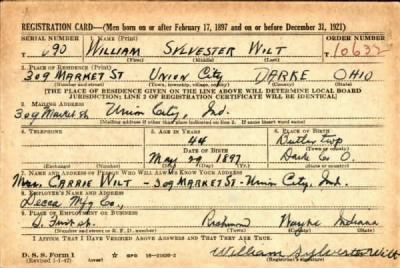 REGISTRATION CARD—(Men born on or after February 17, 1897 and on or before December 31, 1921)
SERIAL NUMBER 1. NAME (Print) ORDER NUMBER
690 WILLIAM SYLVESTER WILT 10632
(First) (Middle) (Last)
2. PLACE OF RESIDENCE (Print)
309 MARKET ST UNION CITY DARKE OHIO
(Number and street) (Town, township, village, or city) (County) (State)
[THE PLACE OF RESIDENCE GIVEN ON THE LINE ABOVE WILL DETERMINE LOCAL BOARD
JURISDICTION; LINE 2 OF REGISTRATION CERTIFICATE WILL BE IDENTICAL]
3. MAILING ADDRESS
309 Market St Union City, Ind.
[Mailing address if other than place indicated on line 2. If same insert word same]
4. TELEPHONE 5. AGE IN YEARS 6. PLACE OF BIRTH
44 Butler twp
DATE OF BIRTH (Town or county)
May 29 1897 Darke C O.
(Exchange) (Number) (Mo.) (Day) (Yr.) (State or country)
7. NAME AND ADDRESS OF PERSON WHO WILL ALWAYS KNOW YOUR ADDRESS
Mrs. CARRIE WILT - 309 MARKET ST - Union City, Ind.
8. EMPLOYER'S NAME AND ADDRESS
Decca Mfg Co.,
9. PLACE OF EMPLOYMENT OR BUSINESS
Richmond Wayne Indiana
(Number and street or R. F. D. number) (Town) (County) (State)
I AFFIRM THAT I HAVE VERIFIED ABOVE ANSWERS AND THAT THEY ARE TRUE.
D. S. S. Form 1
(over) GPO William Sylvester Wilt